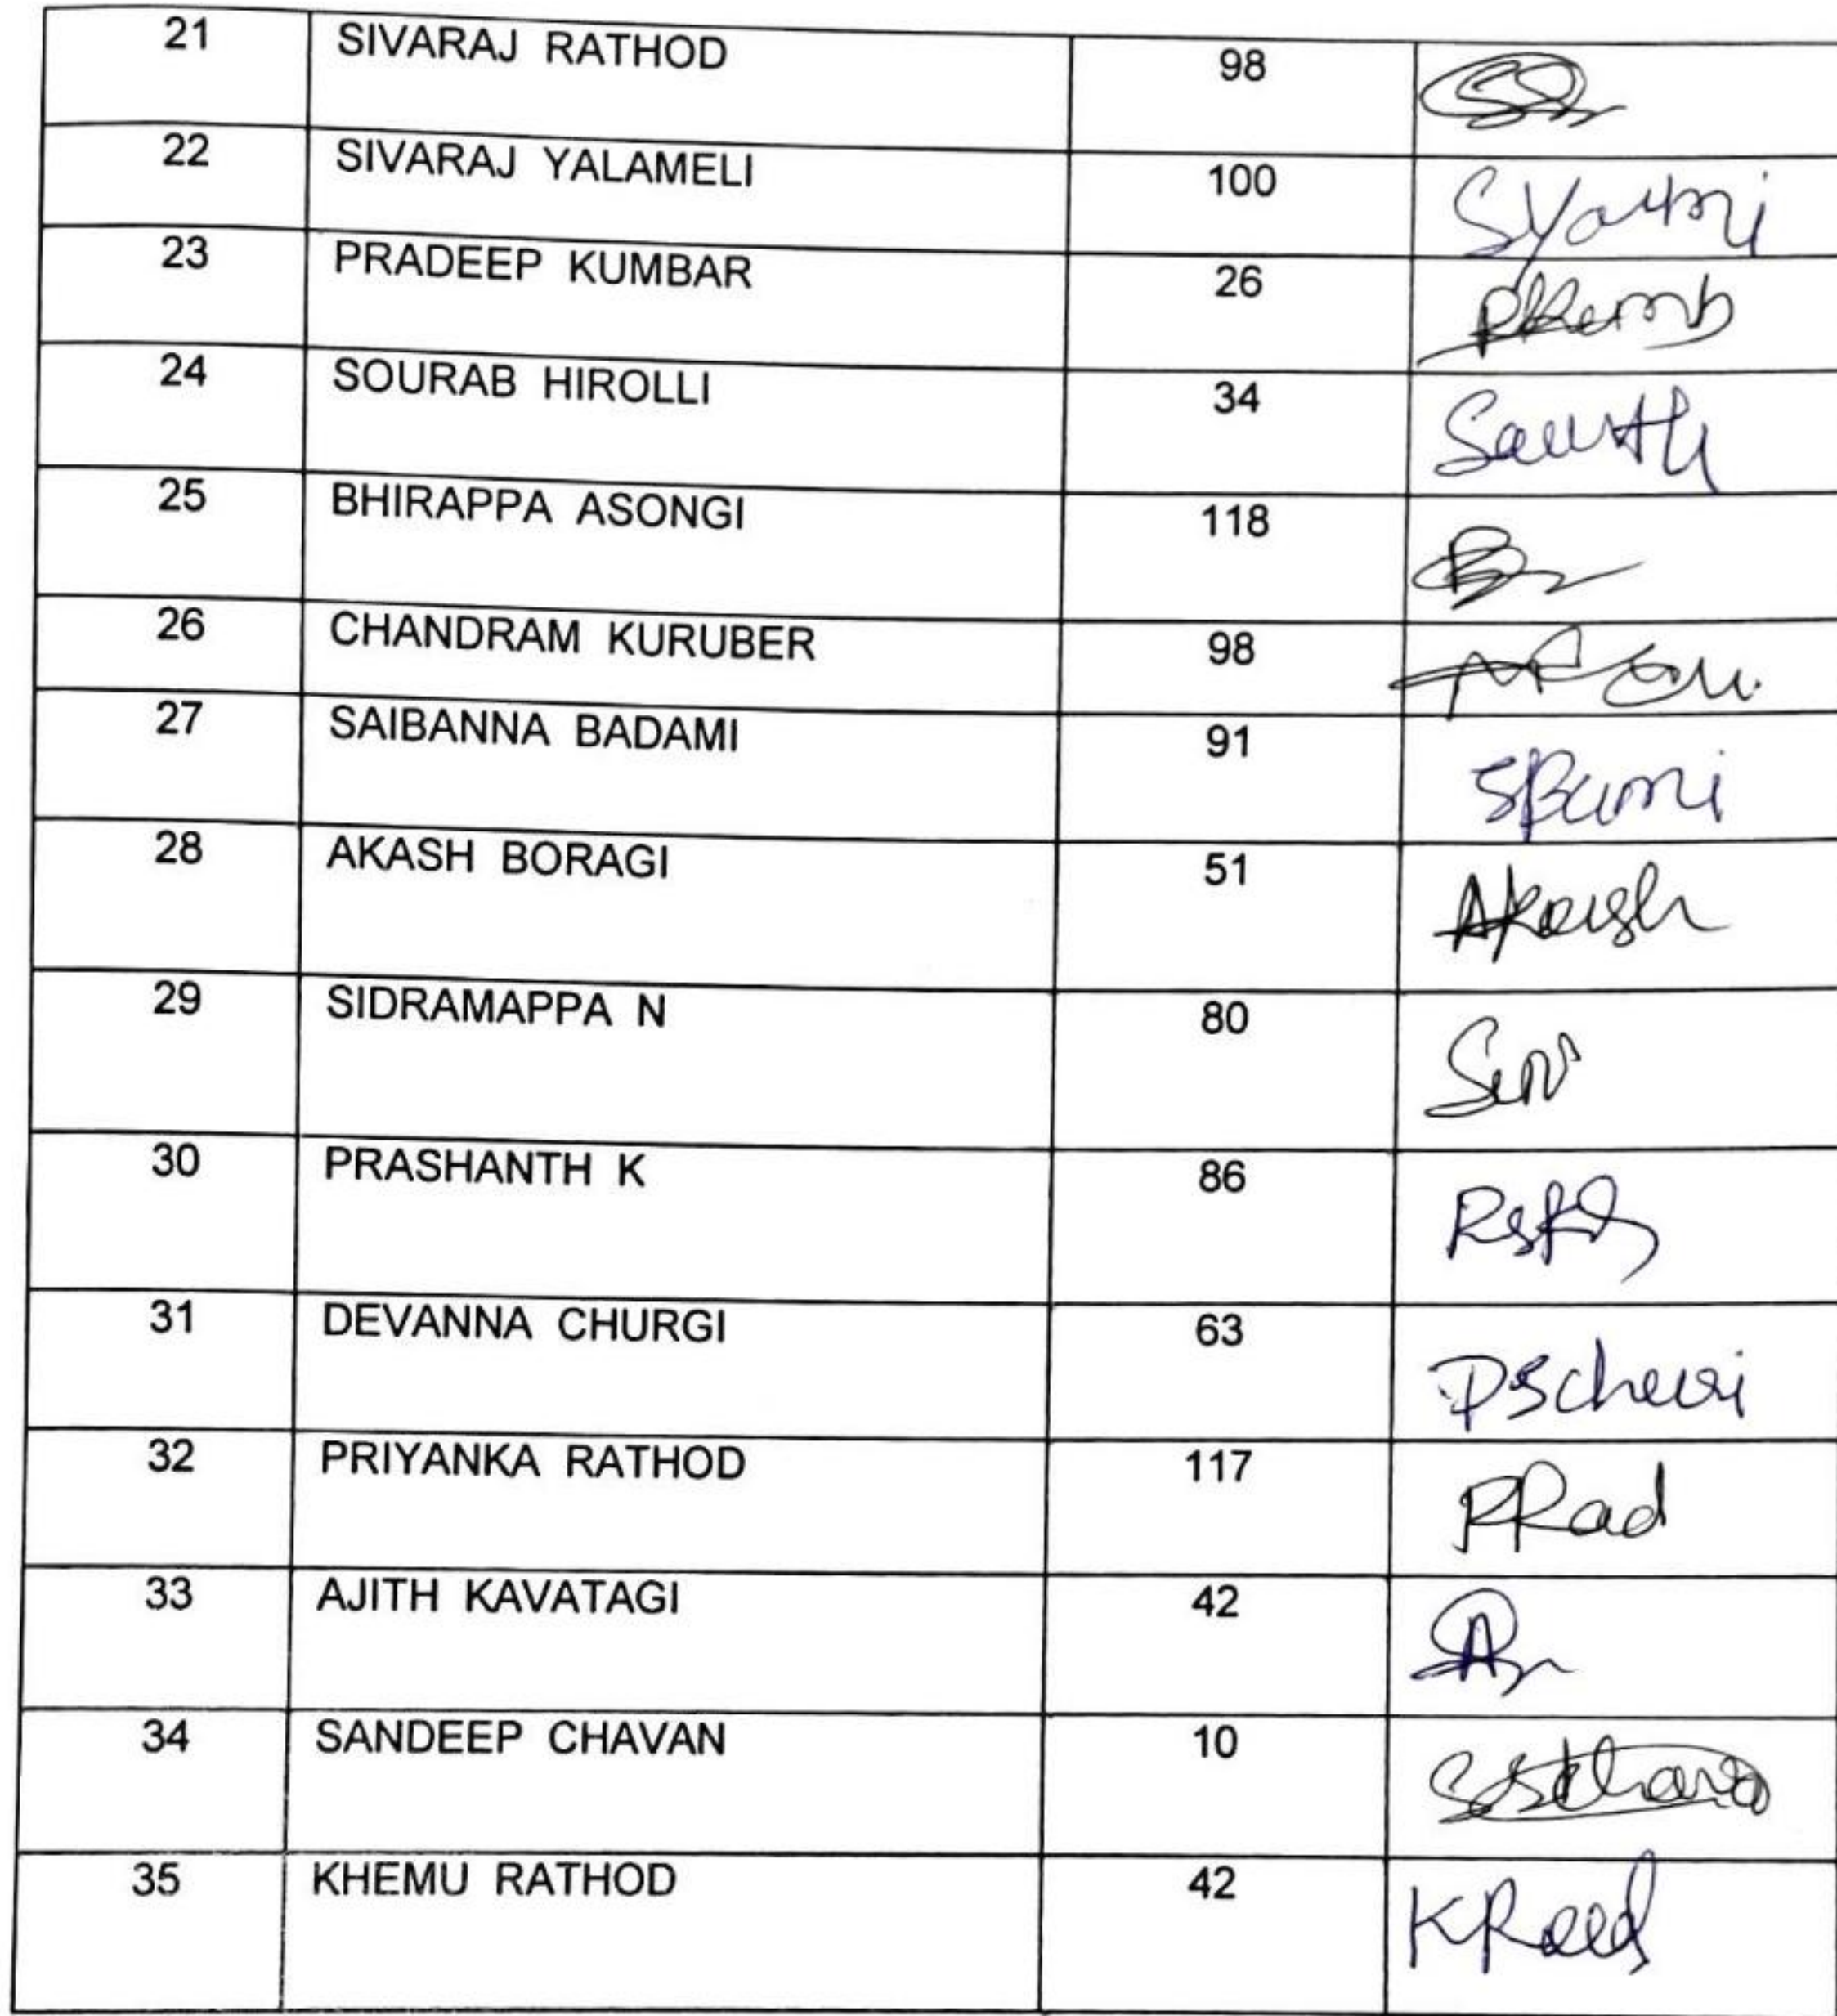 21 SIVARAJ RATHOD 98
22 SIVARAJ YALAMELI 100
23 PRADEEP KUMBAR 26
24 SOURAB HIROLLI 34
25 BHIRAPPA ASONGI 118
26 CHANDRAM KURUBER 98
27 SAIBANNA BADAMI 91
28 AKASH BORAGI 51 Akash
29 SIDRAMAPPA N 80
30 PRASHANTH K 86
31 DEVANNA CHURGI 63
32 PRIYANKA RATHOD 117 PRad
33 AJITH KAVATAGI 42
34 SANDEEP CHAVAN 10
35 KHEMU RATHOD 42